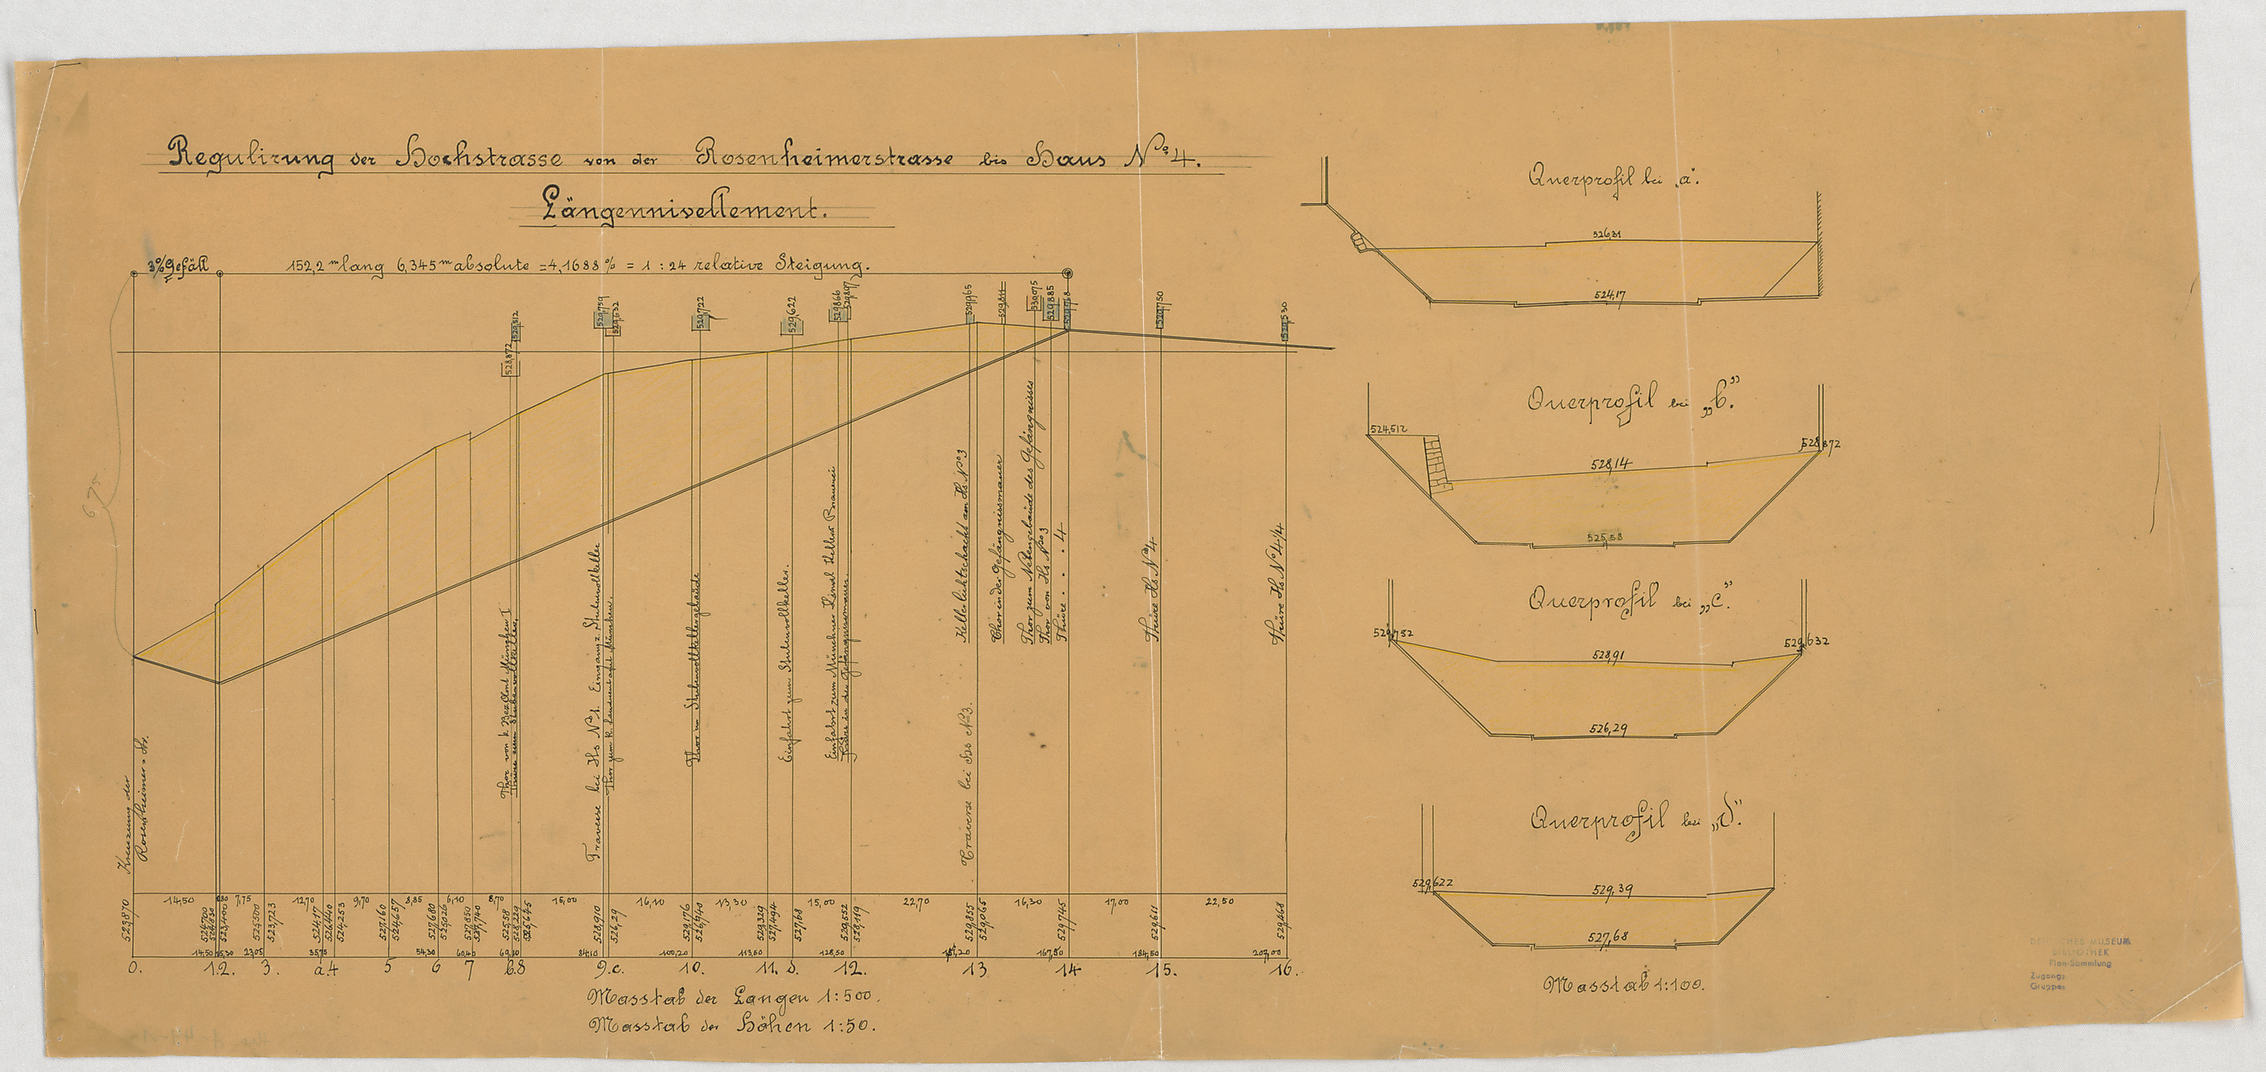 Regulirung der Hochstrasse von der Rosenheimerstrasse bis Haus No 4.
Längennivellement.
3% Gefäll
152,2 m lang 6,345 m absolute = 4,1688 % = 1 : 24 relative Steigung.
528,872
529,512
529,759
529,632
529,722
529,622
529,866
529,897
529,965
529,811
530,075
529,885
529,750
529,530
6,75
Kreuzung der
Rosenheimer-Str.
Thor von k. Bez. Cdo München I
Thüre zum Stubenvollkeller
Traverse bei Hs No 1. Eingang z. Stubenvollkeller
Thor zum k. Landwehr München.
Thor im Stubenvollkellergebäude
Einfahrt zum Stubenvollkeller.
Einfahrt zum Münchner Kindl Keller Brauerei
Thüre in der Gefängnissmauer.
Kellerlichtschacht am Hs No 3
Traverse bei Hs No 3.
Thor in der Gefängnissmauer
Thor zum Nebengebäude des Gefängnisses
Thor von Hs. No 3
Thüre . . . 4
Thüre Hs. No 4
Thüre Hs. No 4/4
14,50 0,80 7,75 12,70 9,70 8,85 6,10 8,70 15,00 16,10 13,30 15,00 22,70 16,30 17,00 22,50
523,870
524,700
523,400
525,500
523,723
524,17
526,440
524,253
527,160
524,657
527,680
525,026
527,850
525,58
528,229
525,645
528,910
526,29
529,176
526,940
529,329
527,494
527,68
529,552
528,119
529,855
529,065
529,745
529,611
529,468
14,50 15,30 23,05 35,75 54,30 60,40 69,10 84,10 100,20 113,50 128,50 151,20 167,50 184,50 207,00
0. 1.2. 3. a.4 5 6 7 b.8 9.c. 10. 11. d. 12. 13 14 15. 16.
Masstab der Langen 1:500.
Masstab der Höhen 1:50.
Querprofil bei „a“.
526,31
524,17
Querprofil bei „b.“
524,512
528,14
528,872
525,58
Querprofil bei „c.“
529,752
528,91
529,632
526,29
Querprofil bei „d“.
529,622
529,39
527,68
Masstab 1:100.
DEUTSCHES MUSEUM
BIBLIOTHEK
Plan-Sammlung
Zugangs
Gruppe: